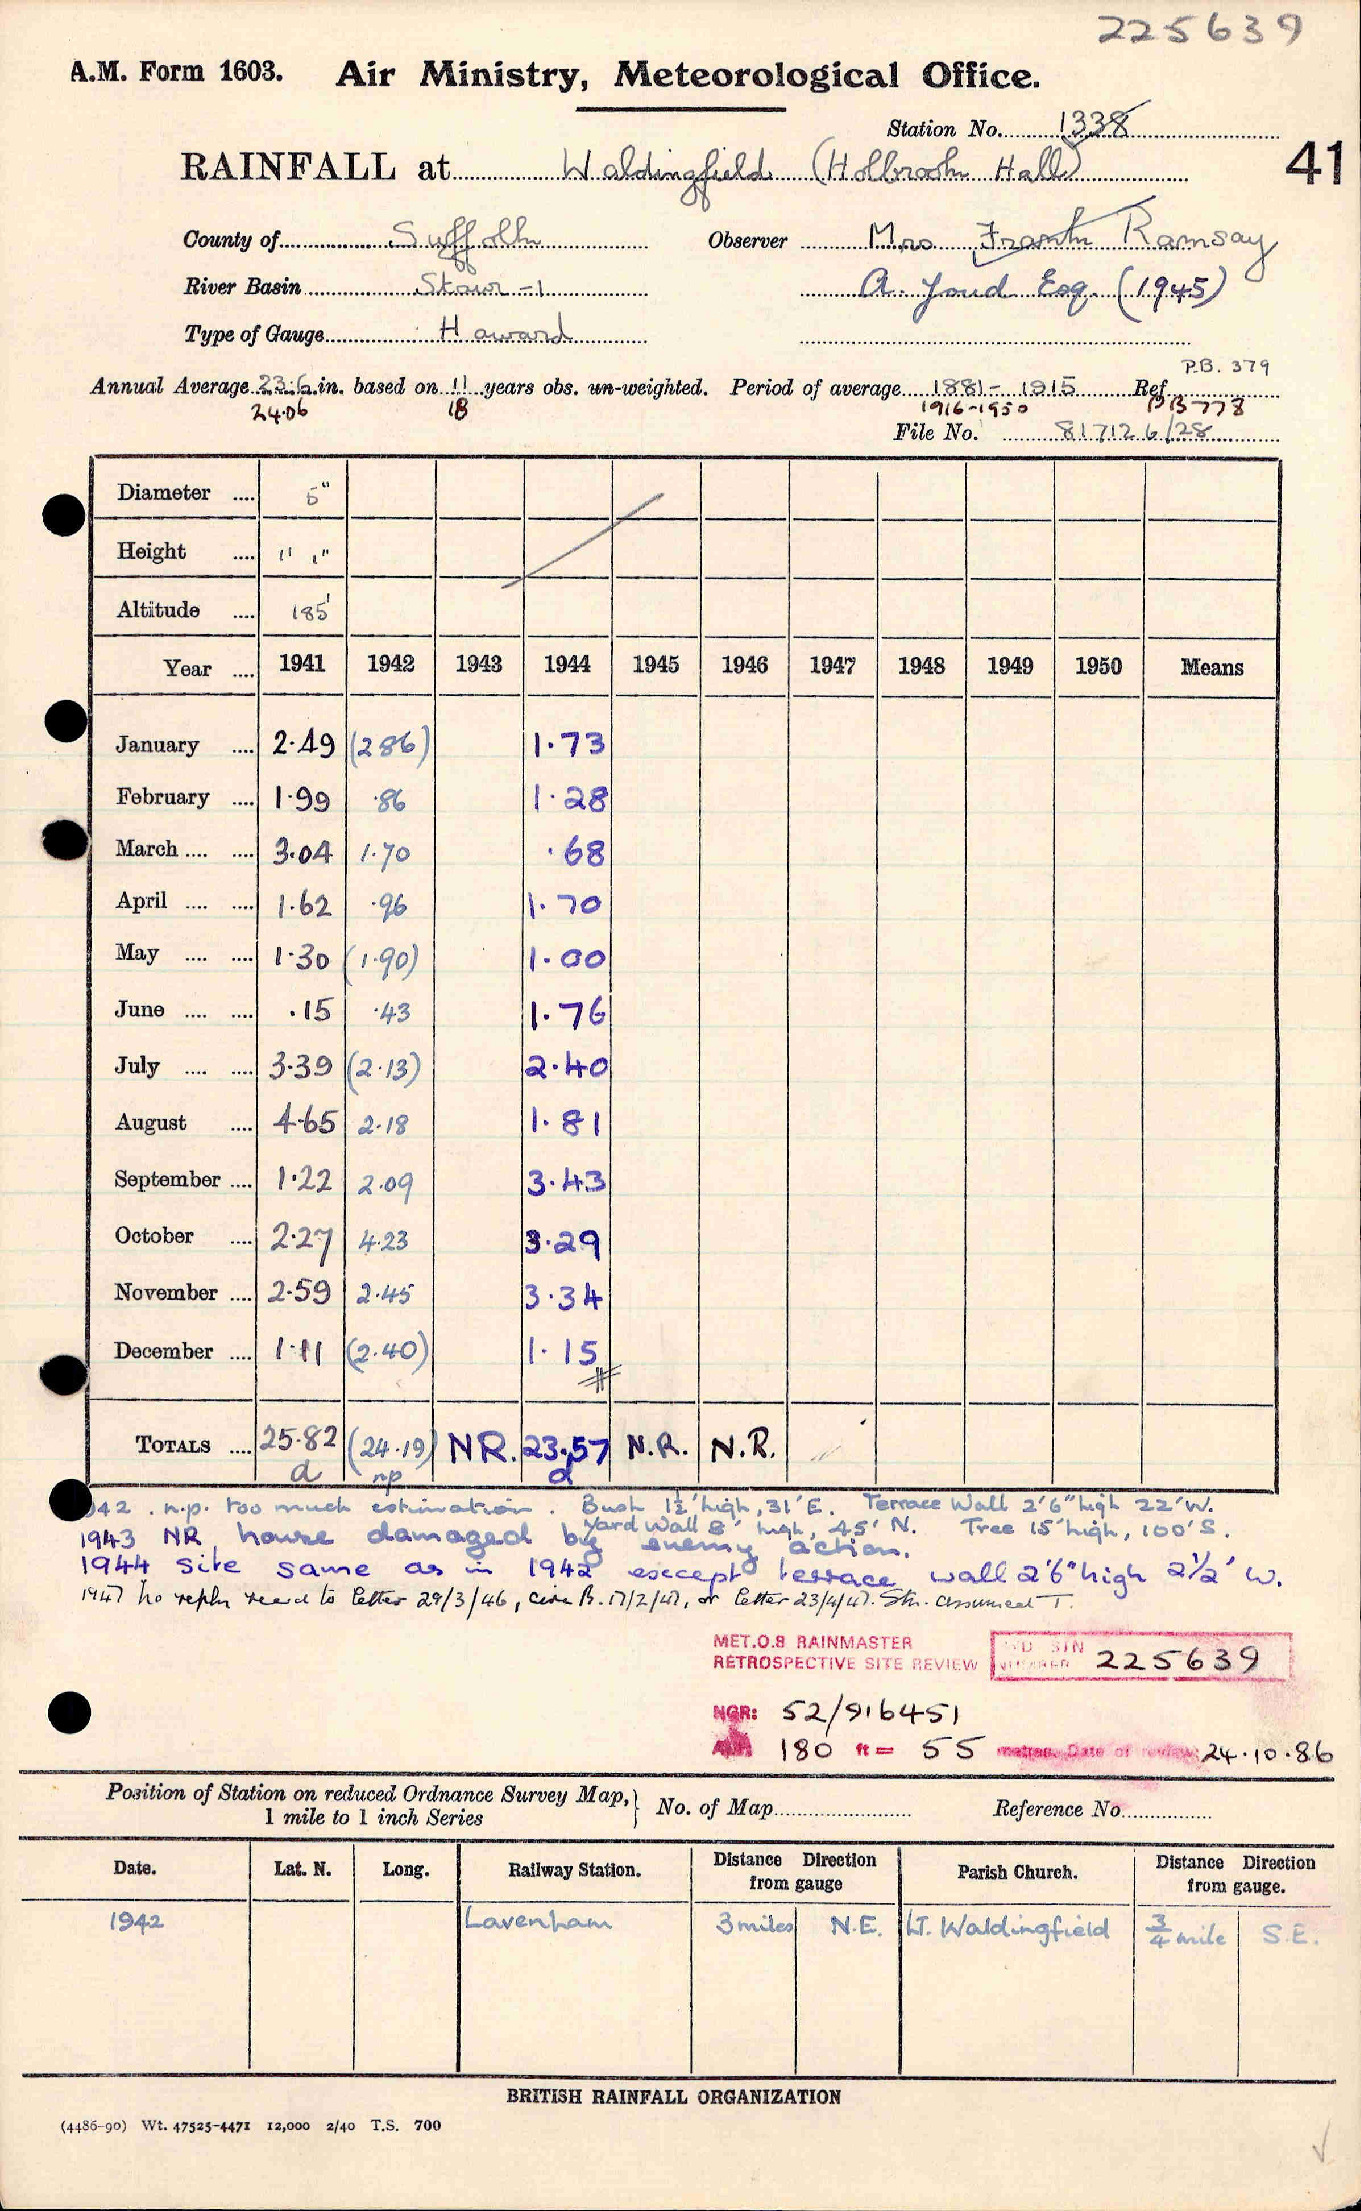 225639
A.M. Form 1603. Air Ministry, Meteorological Office.
Station No. 1338
41
RAINFALL at Waldingfield (Holbrook Hall)
County of Suffolk Observer Mrs Frank Ramsay
River Basin Stour-1 A. Youd Esq. (1945)
Type of Gauge Howard
P.B. 379
Annual Average 23.6 in. based on 11 years obs. un-weighted. Period of average 1881- 1915 Ref.
24.06 18 1916-1950 PB 778
File No. 817126/28
Diameter .... 5"
Height .... 1' 1"
Altitude .... 185'
Year .... 1941 1942 1943 1944 1945 1946 1947 1948 1949 1950 Means
January .... 2.49 (2 86) 1.73
February .... 1.99 .86 1.28
March .... .... 3.04 1.70 .68
April .... .... 1.62 .96 1.70
May .... .... 1.30 (1.90) 1.00
June .... .... .15 .43 1.76
July .... .... 3.39 (2.13) 2.40
August .... 4.65 2.18 1.81
September .... 1.22 2.09 3.43
October .... 2.27 4.23 3.29
November .... 2.59 2.45 3.34
December .... 1.11 (2.40) 1.15
TOTALS .... 25.82 (24.19) NR. 23.57 N.R. N.R.
d np d
942. n.p. too much estimation. Bush 1½' high, 31' E. Terrace Wall 2'6" high 22' W.
Yard Wall 8' high, 45' N. Tree 15' high, 100' S.
1943 NR house damaged by enemy action.
1944 Site same as in 1942 except terrace wall 2'6" high 2½' W.
1947 No reply rec'd to letter 29/3/46, circ B. 17/2/47, or letter 23/4/47. Stn. assumed T.
MET.O.8 RAINMASTER
RETROSPECTIVE SITE REVIEW
STN NUMBER 225639
NGR: 52/916451
180 ft = 55 metres. Date of review: 24.10.86
Position of Station on reduced Ordnance Survey Map, } No. of Map Reference No.
1 mile to 1 inch Series
Date. Lat. N. Long. Railway Station. Distance Direction from gauge Parish Church. Distance Direction from gauge.
1942 Lavenham 3 miles N.E. Lt. Waldingfield ¾ mile S.E.
BRITISH RAINFALL ORGANIZATION
(4486-90) Wt. 47525-4471 12,000 2/40 T.S. 700